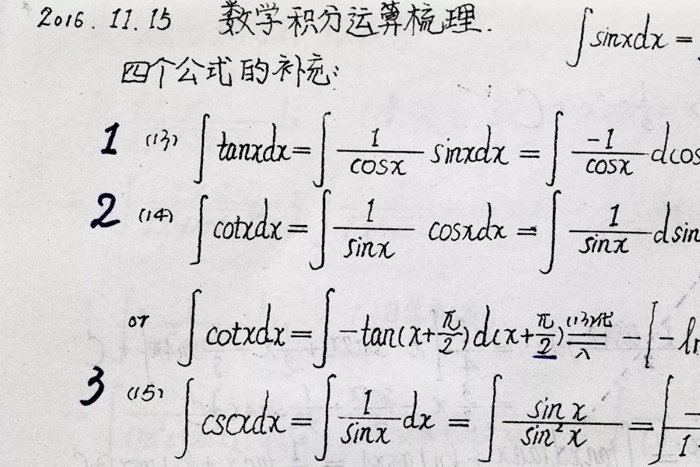 2016.11.15 数学积分运算梳理.
∫sinxdx =
四个公式的补充:
1 (13) ∫tanxdx=∫ 1/cosx sinxdx = ∫ -1/cosx dcos
2 (14) ∫cotxdx=∫ 1/sinx cosxdx = ∫ 1/sinx dsin
or ∫cotxdx=∫-tan(x+π/2)d(x+π/2) (13)代入 = -[-ln
3 (15) ∫cscxdx=∫ 1/sinx dx = ∫ sinx/sin²x = ∫